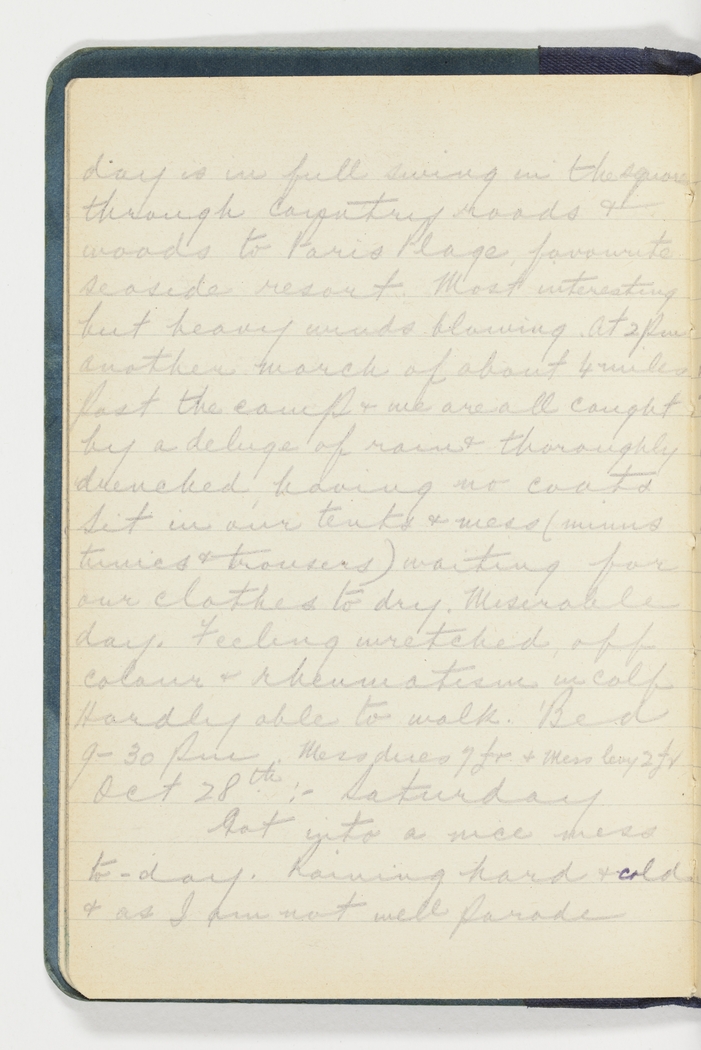 day is in full swing in the
through country roads &
woods to Paris Plage, favourite
seaside resort. Most interesting
but heavy winds blowing. At 2 pm
another march of about 4 miles
past the camp & we are all caught
by a deluge of rain & thoroughly
drenched having no coats
Sit in our tents & mess (minus
tunics & trousers) waiting for
our clothes to dry. Miserable
day. Feeling wretched, off
colour & rheumatism in calf
Hardly able to walk. Bed
9-30 pm. Mess dues 7 fr. & Mess levy 2 fr
Oct 28th :- Saturday
Got into a nice mess
to-day. Raining hard & cold
& as I am not well parade